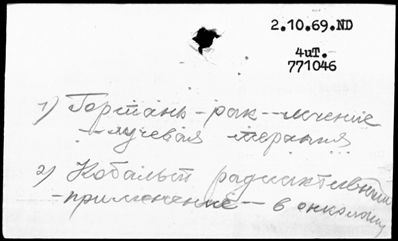 2.10.69.ND
4иТ.
771046
1) Гортань - рак -- лечение
-- лучевая терапия
2) Кобальт радиоактивный
- применение -- в онкологии